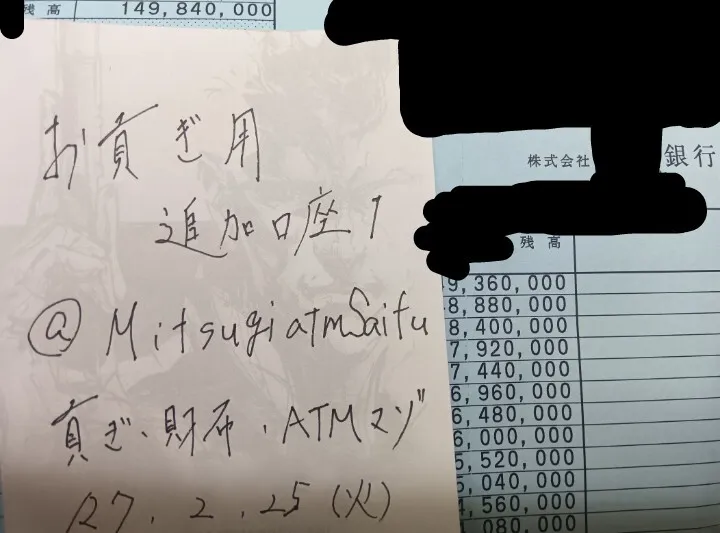 残高 149,840,000
お貢ぎ用
追加口座1
@MitsugiatmSaifu
貢ぎ、財布、ATMマゾ
R7. 2. 25 (火)
株式会社 銀行
残高
9,360,000
8,880,000
8,400,000
7,920,000
7,440,000
6,960,000
6,480,000
6,000,000
5,520,000
5,040,000
4,560,000
080,000